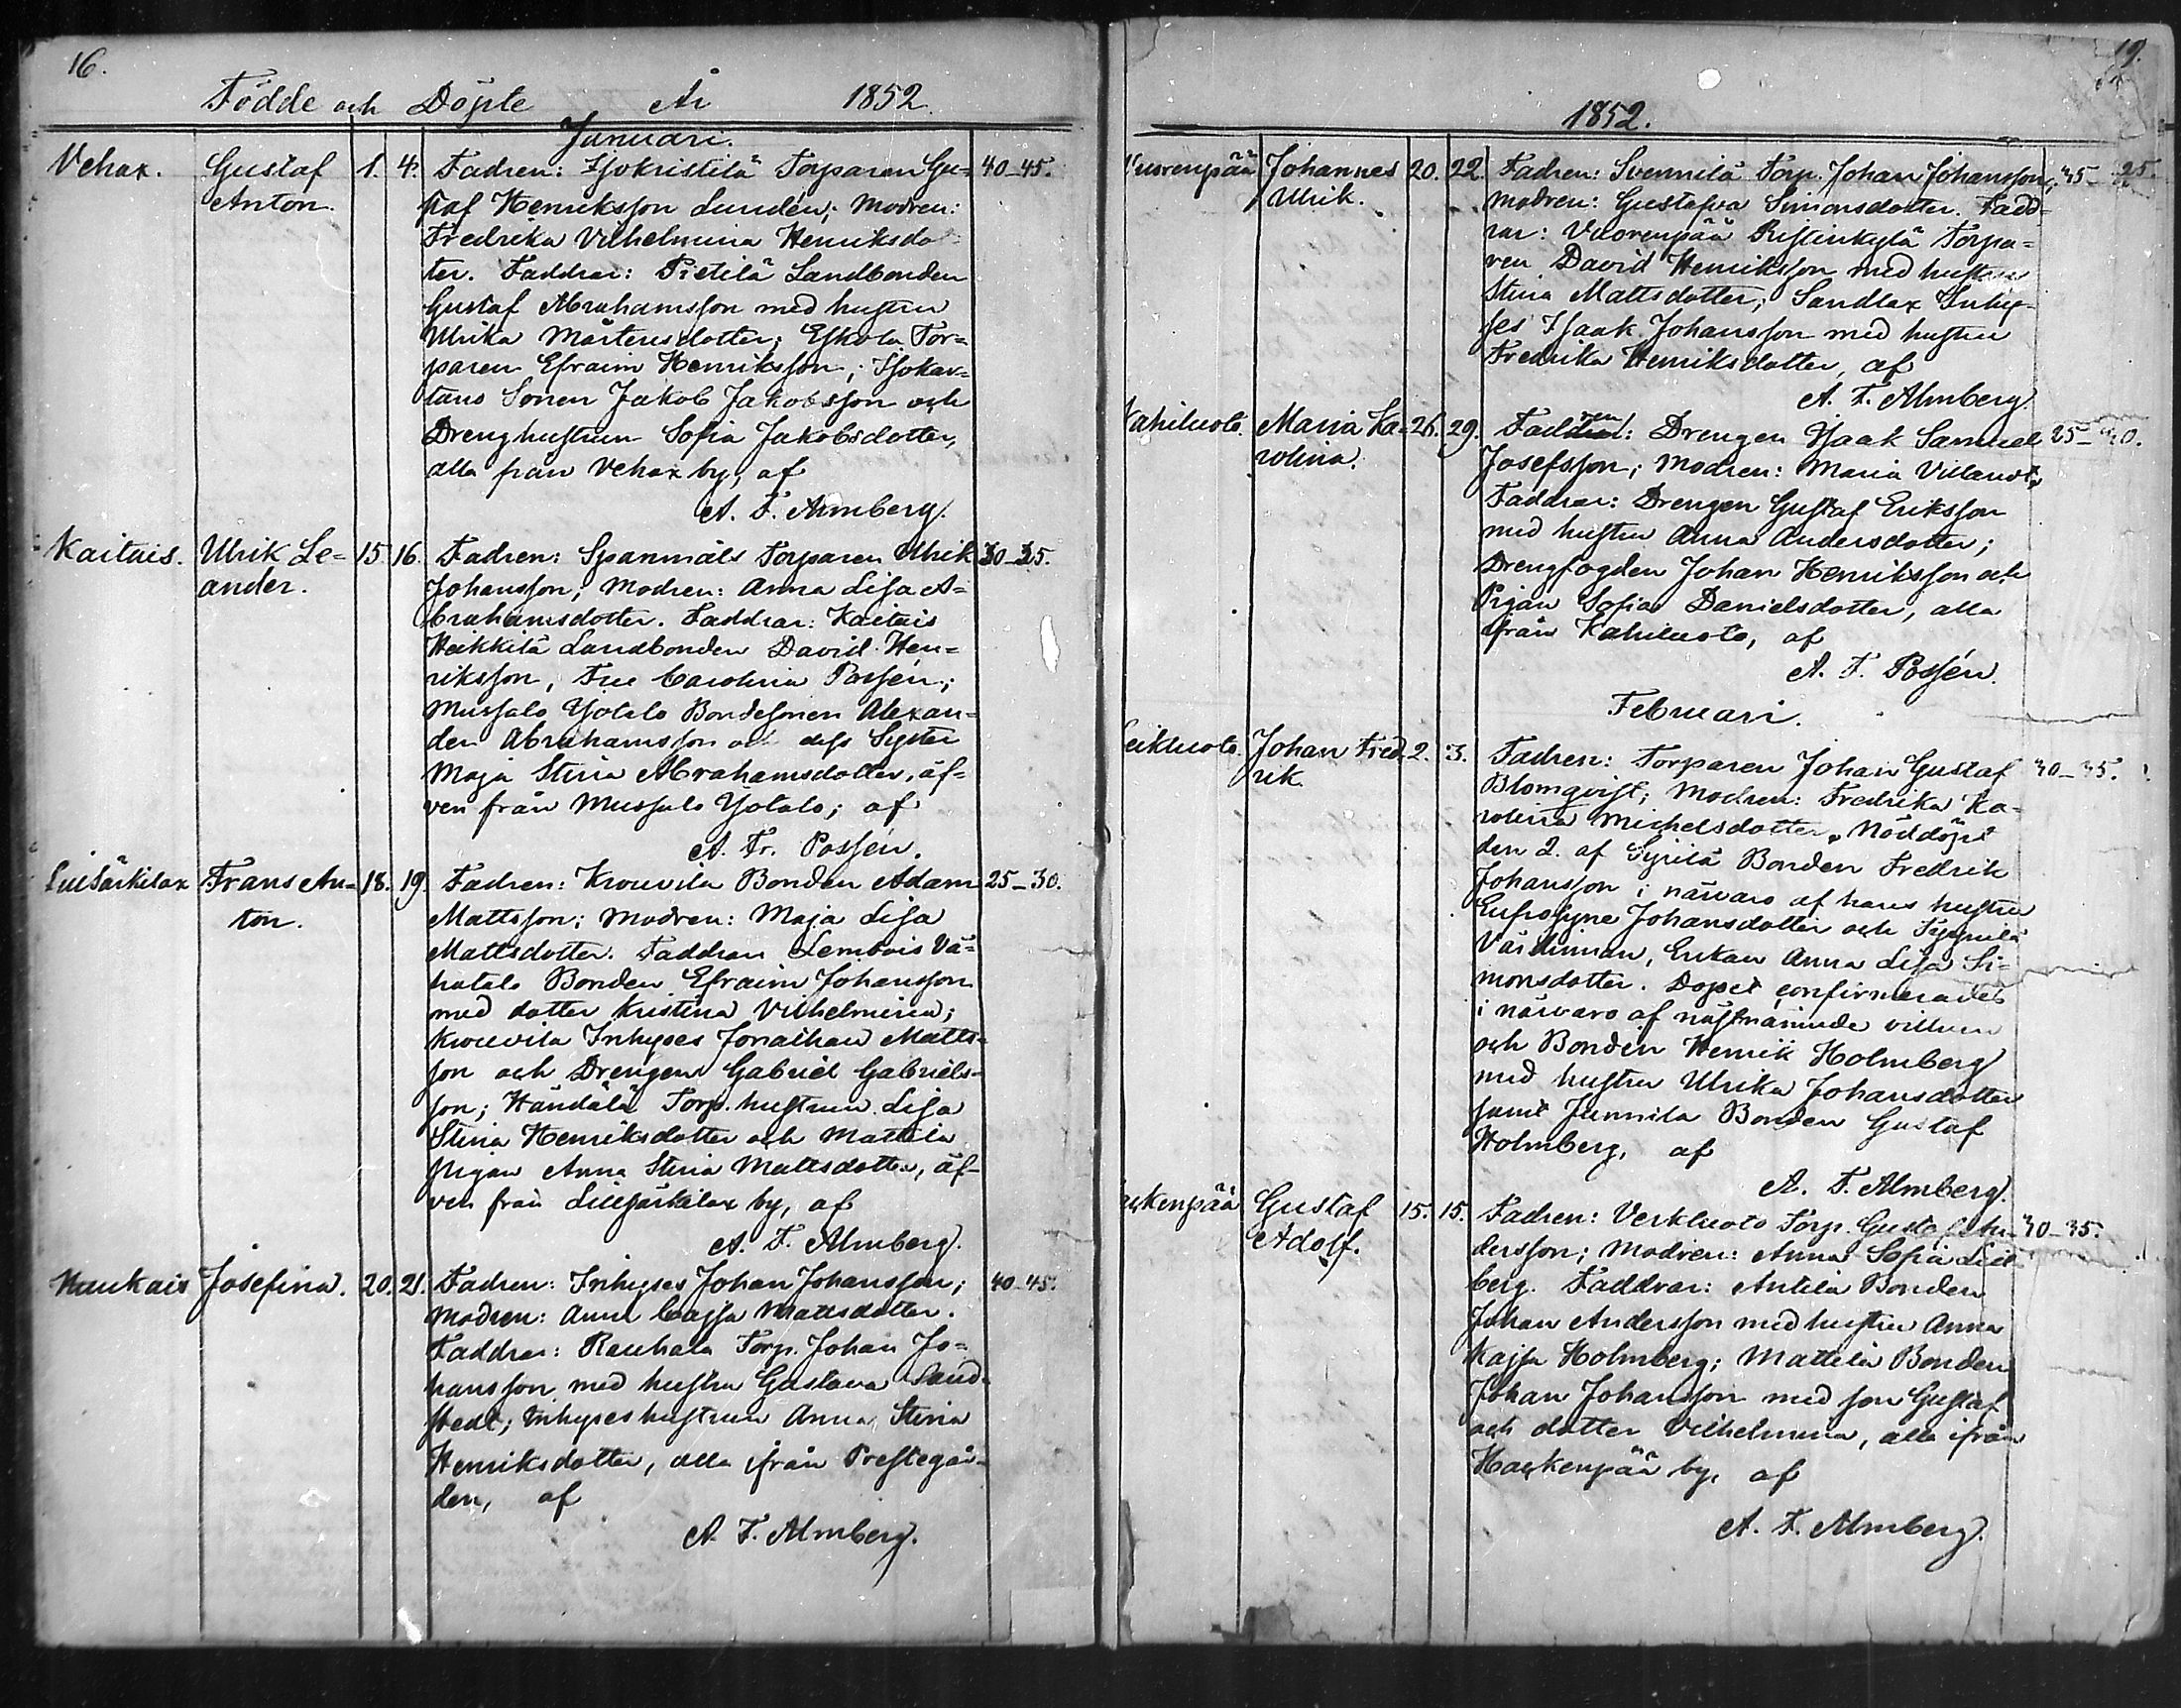 16.
Födde och Döpte År 1852
Januari.
Vehax. Gustaf 1. 4. Fadren: Isokristilä Torparen Gu= 40-45.
Anton. staf Henriksson Lundén; Modren:
Fredrika Vilhelmina Henriksdot=
ter. Faddrar: Pietilä Landbonden
Gustaf Abrahamsson med hustru
Ulrika Mårtensdotter; Eskola Tor=
paren Efraim Henriksson;
Sonen Jakob Jakobsson och
Drenghustrun Sofia Jakobsdotter,
alla från Vehax by, af
A. F. Almberg.
Kaitais. Ulrik Le= 15. 16. Fadren: Spanmäls Torparen Ulrik 30-35.
ander. Johansson; Modren: Anna Lisa A=
brahamsdotter. Faddrar: Kaitais
Heikkilä Landbonden David Hen=
riksson, Fru Carolina Possén;
Mussalo Yötalo Bondesonen Alexan=
der Abrahamsson och dess Syster
Maja Stina Abrahamsdotter, äf=
ven från Mussalo Yötalo; af
A. Fr. Possén.
Lillsärkilax Frans An= 18. 19. Fadren: Krouvila Bonden Adam 25-30.
ton. Mattsson; Modren: Maja Lisa
Mattsdotter. Faddrar Lembois Vä=
hätalo Bonden Efraim Johansson
med dotter Kristina Vilhelmina;
Krouvila Inhyses Jonathan Matts=
son och Drengen Gabriel Gabriels=
son; Händälä Torp. hustrun Lisa
Stina Henriksdotter och Mattila
pigan Anna Stina Mattsdotter, äf=
ven från Lillsärkilax by, af
A. F. Almberg.
Haukais Josefina. 20. 21. Fadren: Inhyses Johan Johansson; 40-45.
Modren: Anna Cajsa Mattsdotter.
Faddrar: Rauhala Torp. Johan Jo=
hansson med hustru Gustava Sand=
stedt; Inhyseshustrun Anna Stina
Henriksdotter, alla ifrån Prestegår=
den, af
A. F. Almberg.
19.
1852.
Vuorenpää Johannes 20. 22. Fadren: Svennilä Torp. Johan Johansson; 25.
Ulrik. Modren: Gustafva Simonsdotter. Fadd=
rar: Vuorenpää Ristinkylä Torpa=
ren David Henriksson med hustru
Stina Mattsdotter; Sandlax Inhy=
ses Isaak Johansson med hustru
Fredrika Henriksdotter, af
A. F. Almberg.
Kahiluoto. Maria Ka= 26. 29. Fadren: Drengen Isaak Samuel 25-30.
rolina. Josefsson; Modren: Maria
Faddrar: Drengen Gustaf Eriksson
med hustru Anna Andersdotter;
Drengfogden Johan Henriksson och
Pigan Sofia Danielsdotter, alla
från Kahiluoto, af
A. F. Possén.
Februari.
eikluoto. Johan Fred= 2. 3. Fadren: Torparen Johan Gustaf 30-35.
rik. Blomqvist; Modren: Fredrika Ka=
rolina Michelsdotter. Nöddöpt
den 2. af Syrilä Bonden Fredrik
Johansson i närvaro af hans hustru
Eufrosyne Johansdotter och
Värdinnan, Enkan Anna Lisa Si=
monsdotter. Dopet confirmerades
i närvaro af nästnämnde vittnen
och Bonden Henrik Holmberg
med hustru Ulrika Johansdotter
samt Junnila Bonden Gustaf
Holmberg, af
A. F. Almberg.
ukenpää Gustaf 15. 15. Fadren: Verkluoto Torp. Gustaf An= 30-35.
Adolf. dersson; Modren: Anna Sofia Lill=
berg. Faddrar: Antila Bonden
Johan Andersson med hustru Anna
Kajsa Holmberg; Mattila Bonden
Johan Johansson med son Gustaf
och dotter Vilhelmina, alla ifrån
Haukenpää by, af
A. F. Almberg.